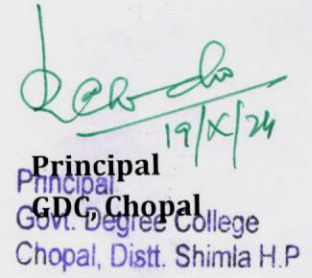 19/X/24
Principal
Principal
GDC, Chopal
Govt. Degree College
Chopal, Distt. Shimla H.P